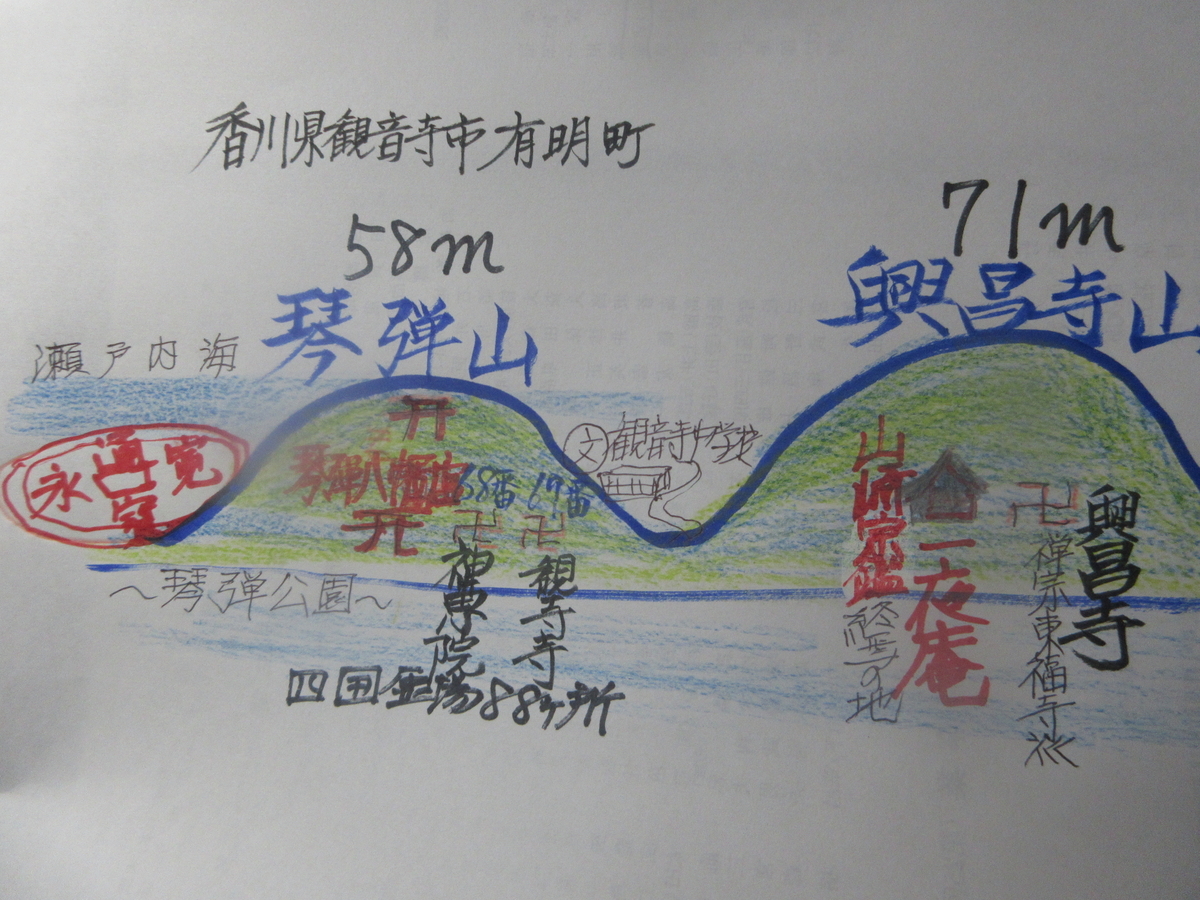 香川県観音寺市有明町
58m
琴弾山
71m
興昌寺山
瀬戸内海
寛永通宝
琴弾八幡宮
68番 69番
卍 卍
神恵院
観音寺
文 観音寺中学校
〜琴弾公園〜
四国霊場88ヶ所
山崎宗鑑
終焉の地
一夜庵
卍
禅宗東福寺派
興昌寺